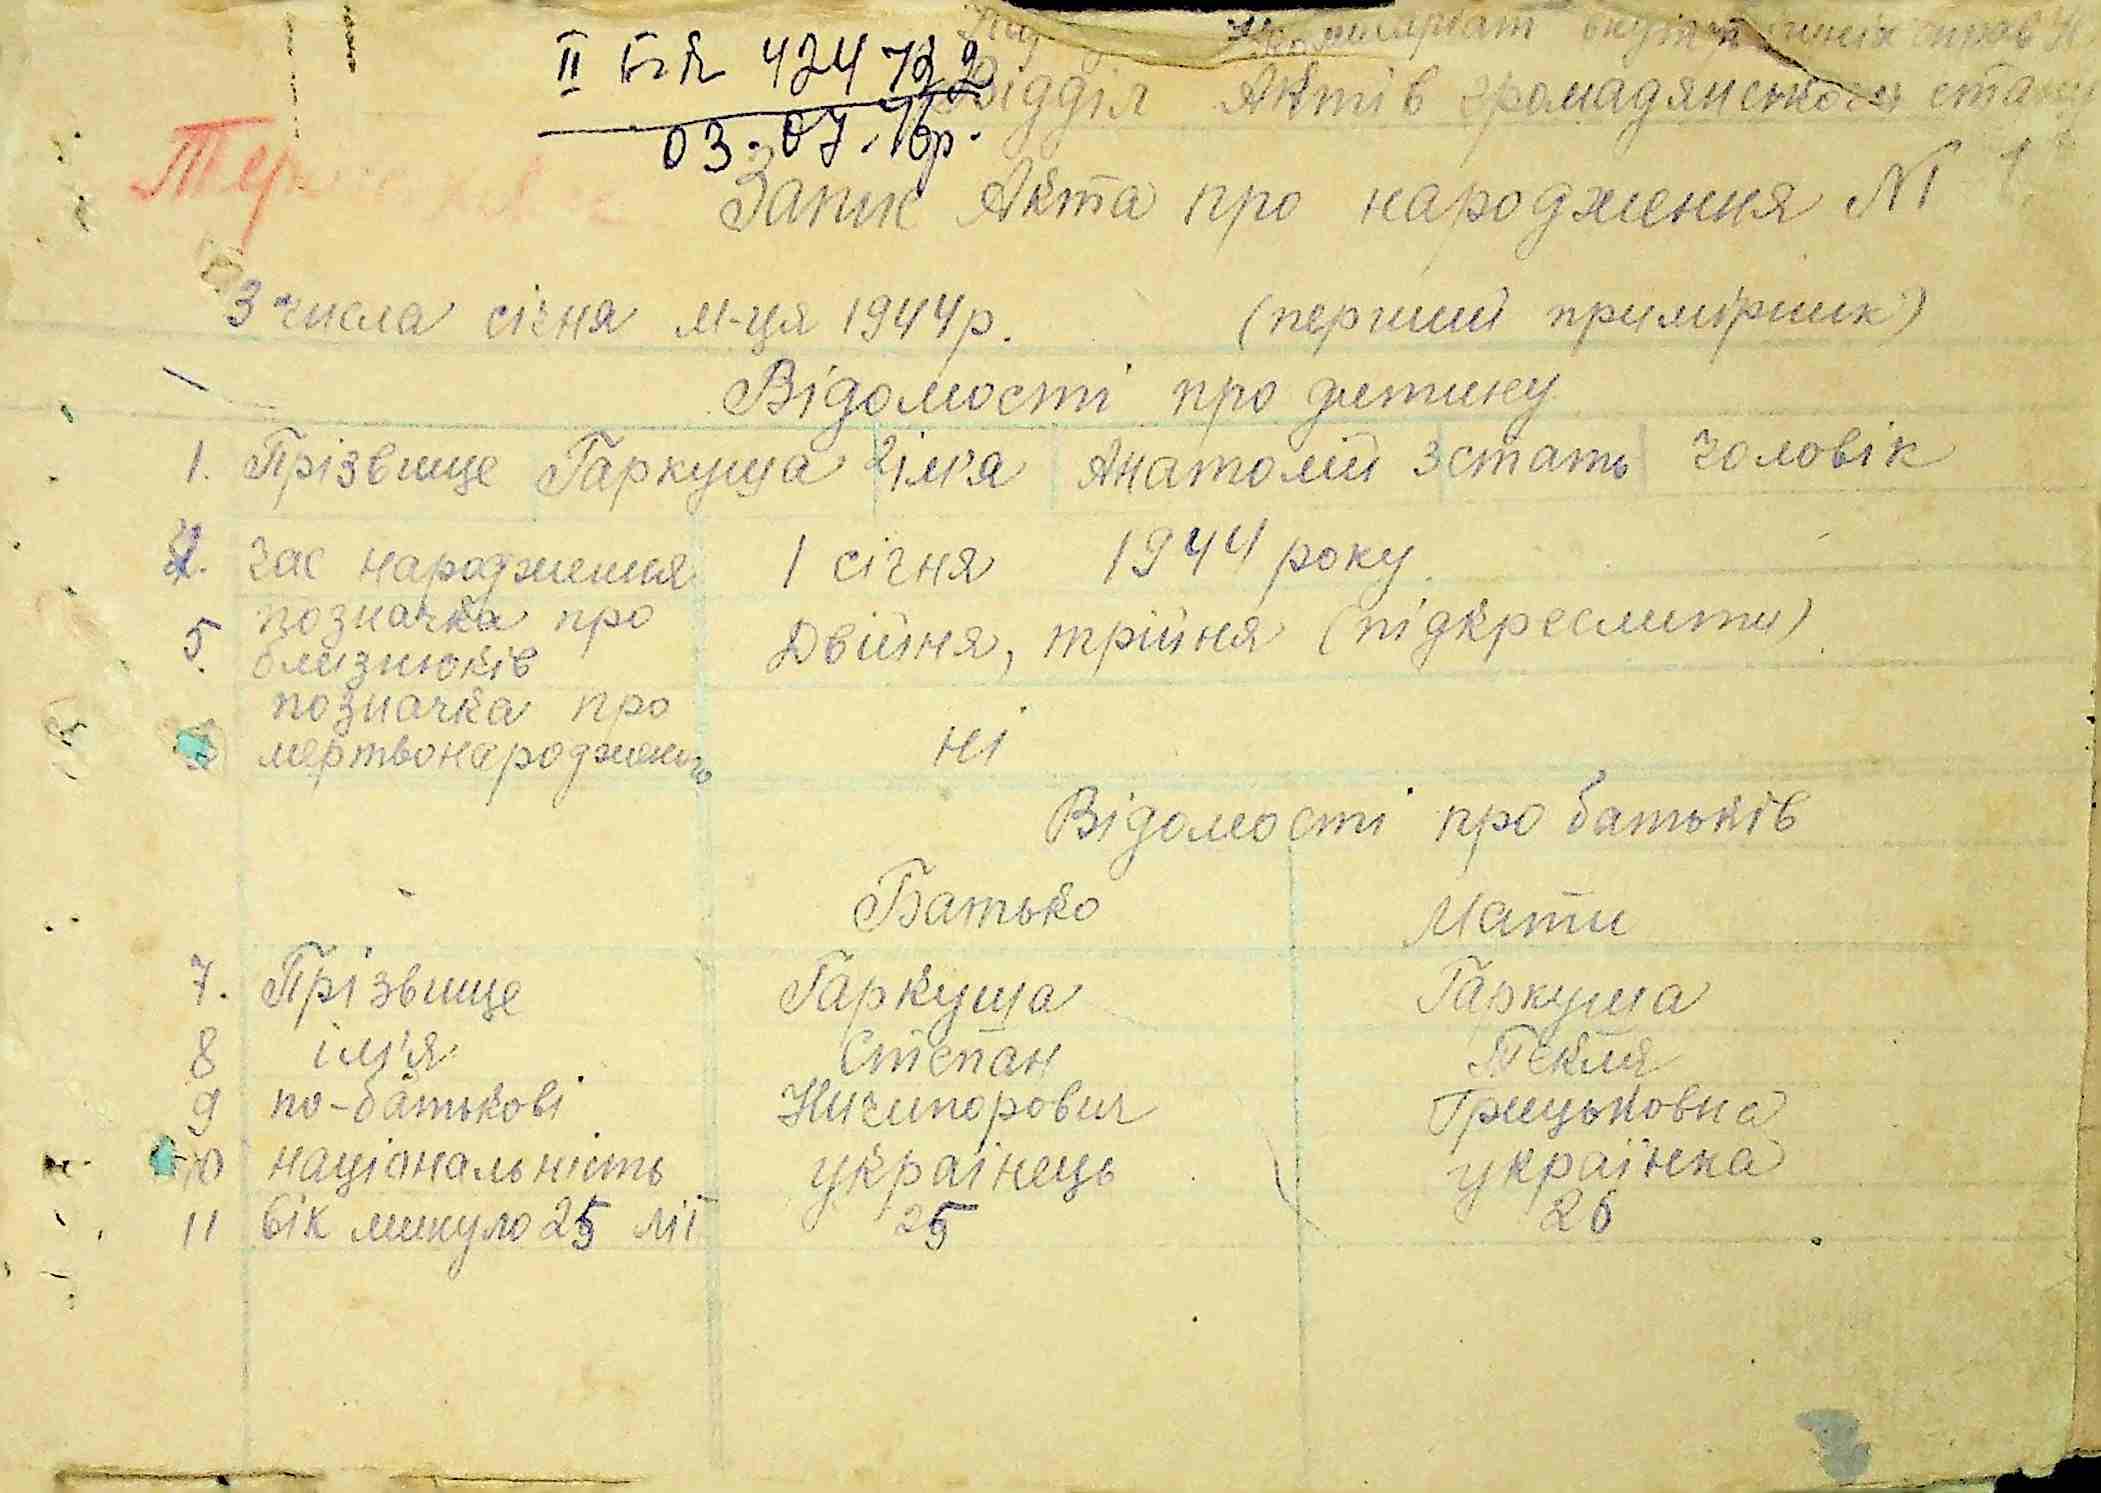 Відділ Актів громадянського стану
03.07.76р.
Запис Акта про народження № 1
3 числа січня м-ця 1944р. (перший примірник)
Відомості про дитину
1. Прізвище Гаркуша 2 ім'я Анатолій 3 стать чоловік
4. час народження 1 січня 1944 року
5. позначка про
близнюків Двійня, трійня (підкреслити)
позначка про
мертвонародженого ні
Відомості про батьків
Батько Мати
7. Прізвище Гаркуша Гаркуша
8 ім'я Степан Текля
9 по-батькові Ничипорович Грицьковна
10 національність українець українка
11 вік минуло 25 літ 25 26